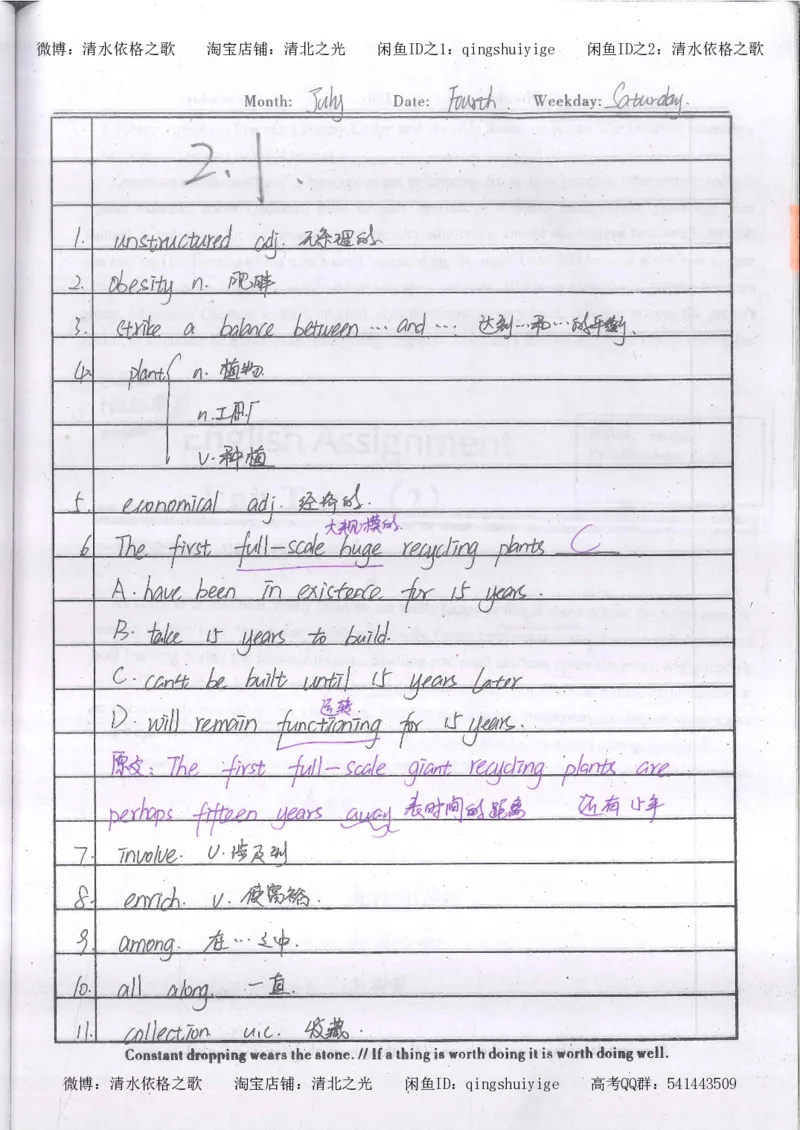 微博：清水依格之歌 淘宝店铺：清北之光 闲鱼ID之1：qingshuiyige 闲鱼ID之2：清水依格之歌
Month: July Date: Fourth. Weekday: Saturday.
2.1.
1. unstructured adj. 无条理的
2. obesity n. 肥胖
3. strike a balance between … and … 达到…和…的平衡.
4. plant n. 植物.
n. 工厂
v. 种植
5. economical adj. 经济的.
大规模的
6 The first full-scale huge recycling plants C
A. have been in existence for 15 years.
B. take 15 years to build.
C. can't be built until 15 years later
运转
D. will remain functioning for 15 years.
原文: The first full-scale giant recycling plants are
perhaps fifteen years away 表时间的距离 还有15年
7. involve. v. 涉及到
8. enrich. v. 使富裕.
9. among. 在…之中.
10. all along. 一直.
11. collection u.c. 收藏.
Constant dropping wears the stone. // If a thing is worth doing it is worth doing well.
微博：清水依格之歌 淘宝店铺：清北之光 闲鱼ID：qingshuiyige 高考QQ群：541443509